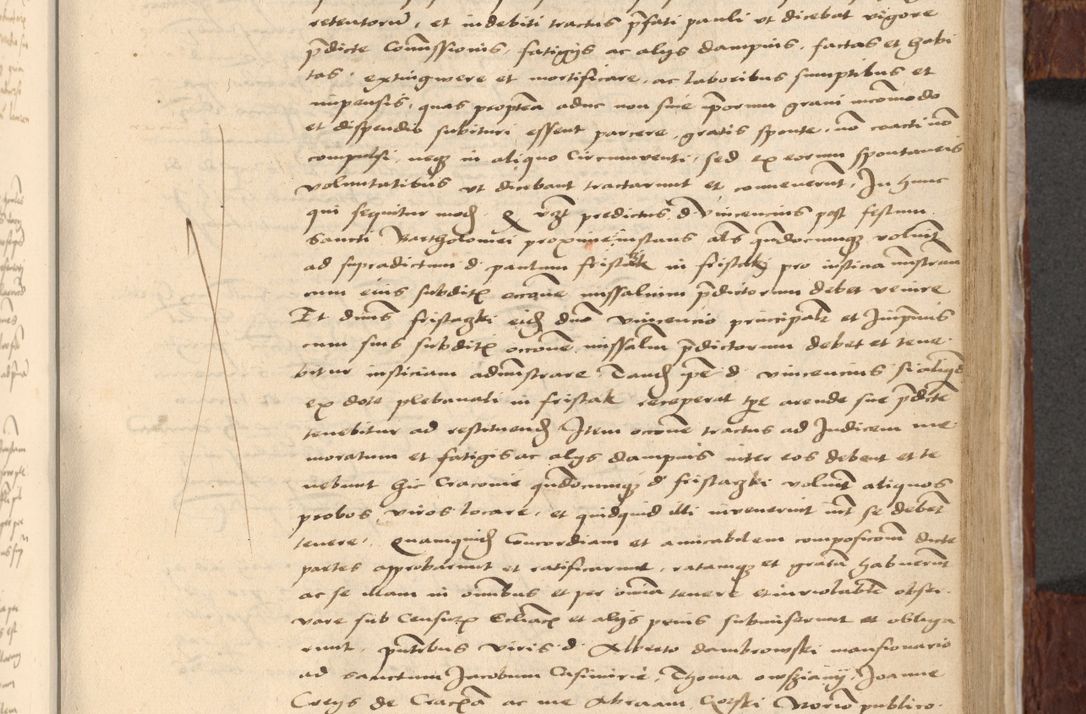 retentorum, et indebiti tractus pfati pauli ut dicebat vigore
pdicte Comissionis, fatigijs ac alijs dampnis, factas et habi
tas, extinguere et mortificare, ac laboribus sumptibus et
impensis, quas propterea adhuc non sine ipsorum gravi incomodo
et dispendio subituri essent parcere, gratis sponte, no coacti no
compulsi, neq in aliquo Circumventi, sed ex eorum spontaneis
voluntatibus ut dicebant tractarunt et convenerunt, In hunc
qui sequitur mod. Q predictus d Vincencius post festum
Sancti Bartholomei proxime instans als qndocumq voluit
ad supradictum d. paulum fristak in fristak pro iusticia ministran
cum eius subdit occone missalium pdictorum debet venire
Et dnus fristazki eid dno vincencio principalr et Imprimis
cum suis subdit occone missalium pdictorum debet et tene
bitur iusticiam administrare Tand ipse d. vincencius si aliquid
ex dote plebanali in fristak receperat tpe arende sue pdicte
tenebitur ad restituend Item occone tractus ad Judicem me
moratum et fatigis ac alijs dampnis inter eos debent et te
nebunt hic Cracovie qndocumq d fristazki voluit aliquos
probos viros locare, et quidquid illi invenerint int se debet
tenere. Quamquid Concordiam et amicabilem composicom dicte
partes approbarunt et ratificarunt, ratamq et gratam habuerunt
ac se illam in omibus et per omia tenere et inviolabilr obser
vare sub Censuris Ecliacis et alijs penis submiserunt et obliga
runt, pntibus viris d. Alberto dambrowski mansionario
ad sanctum Jacobum Casimirie, Thoma owsziany, Joanne
Cretijs de Cracovia ac me Abraam Gorski Notorio publico.